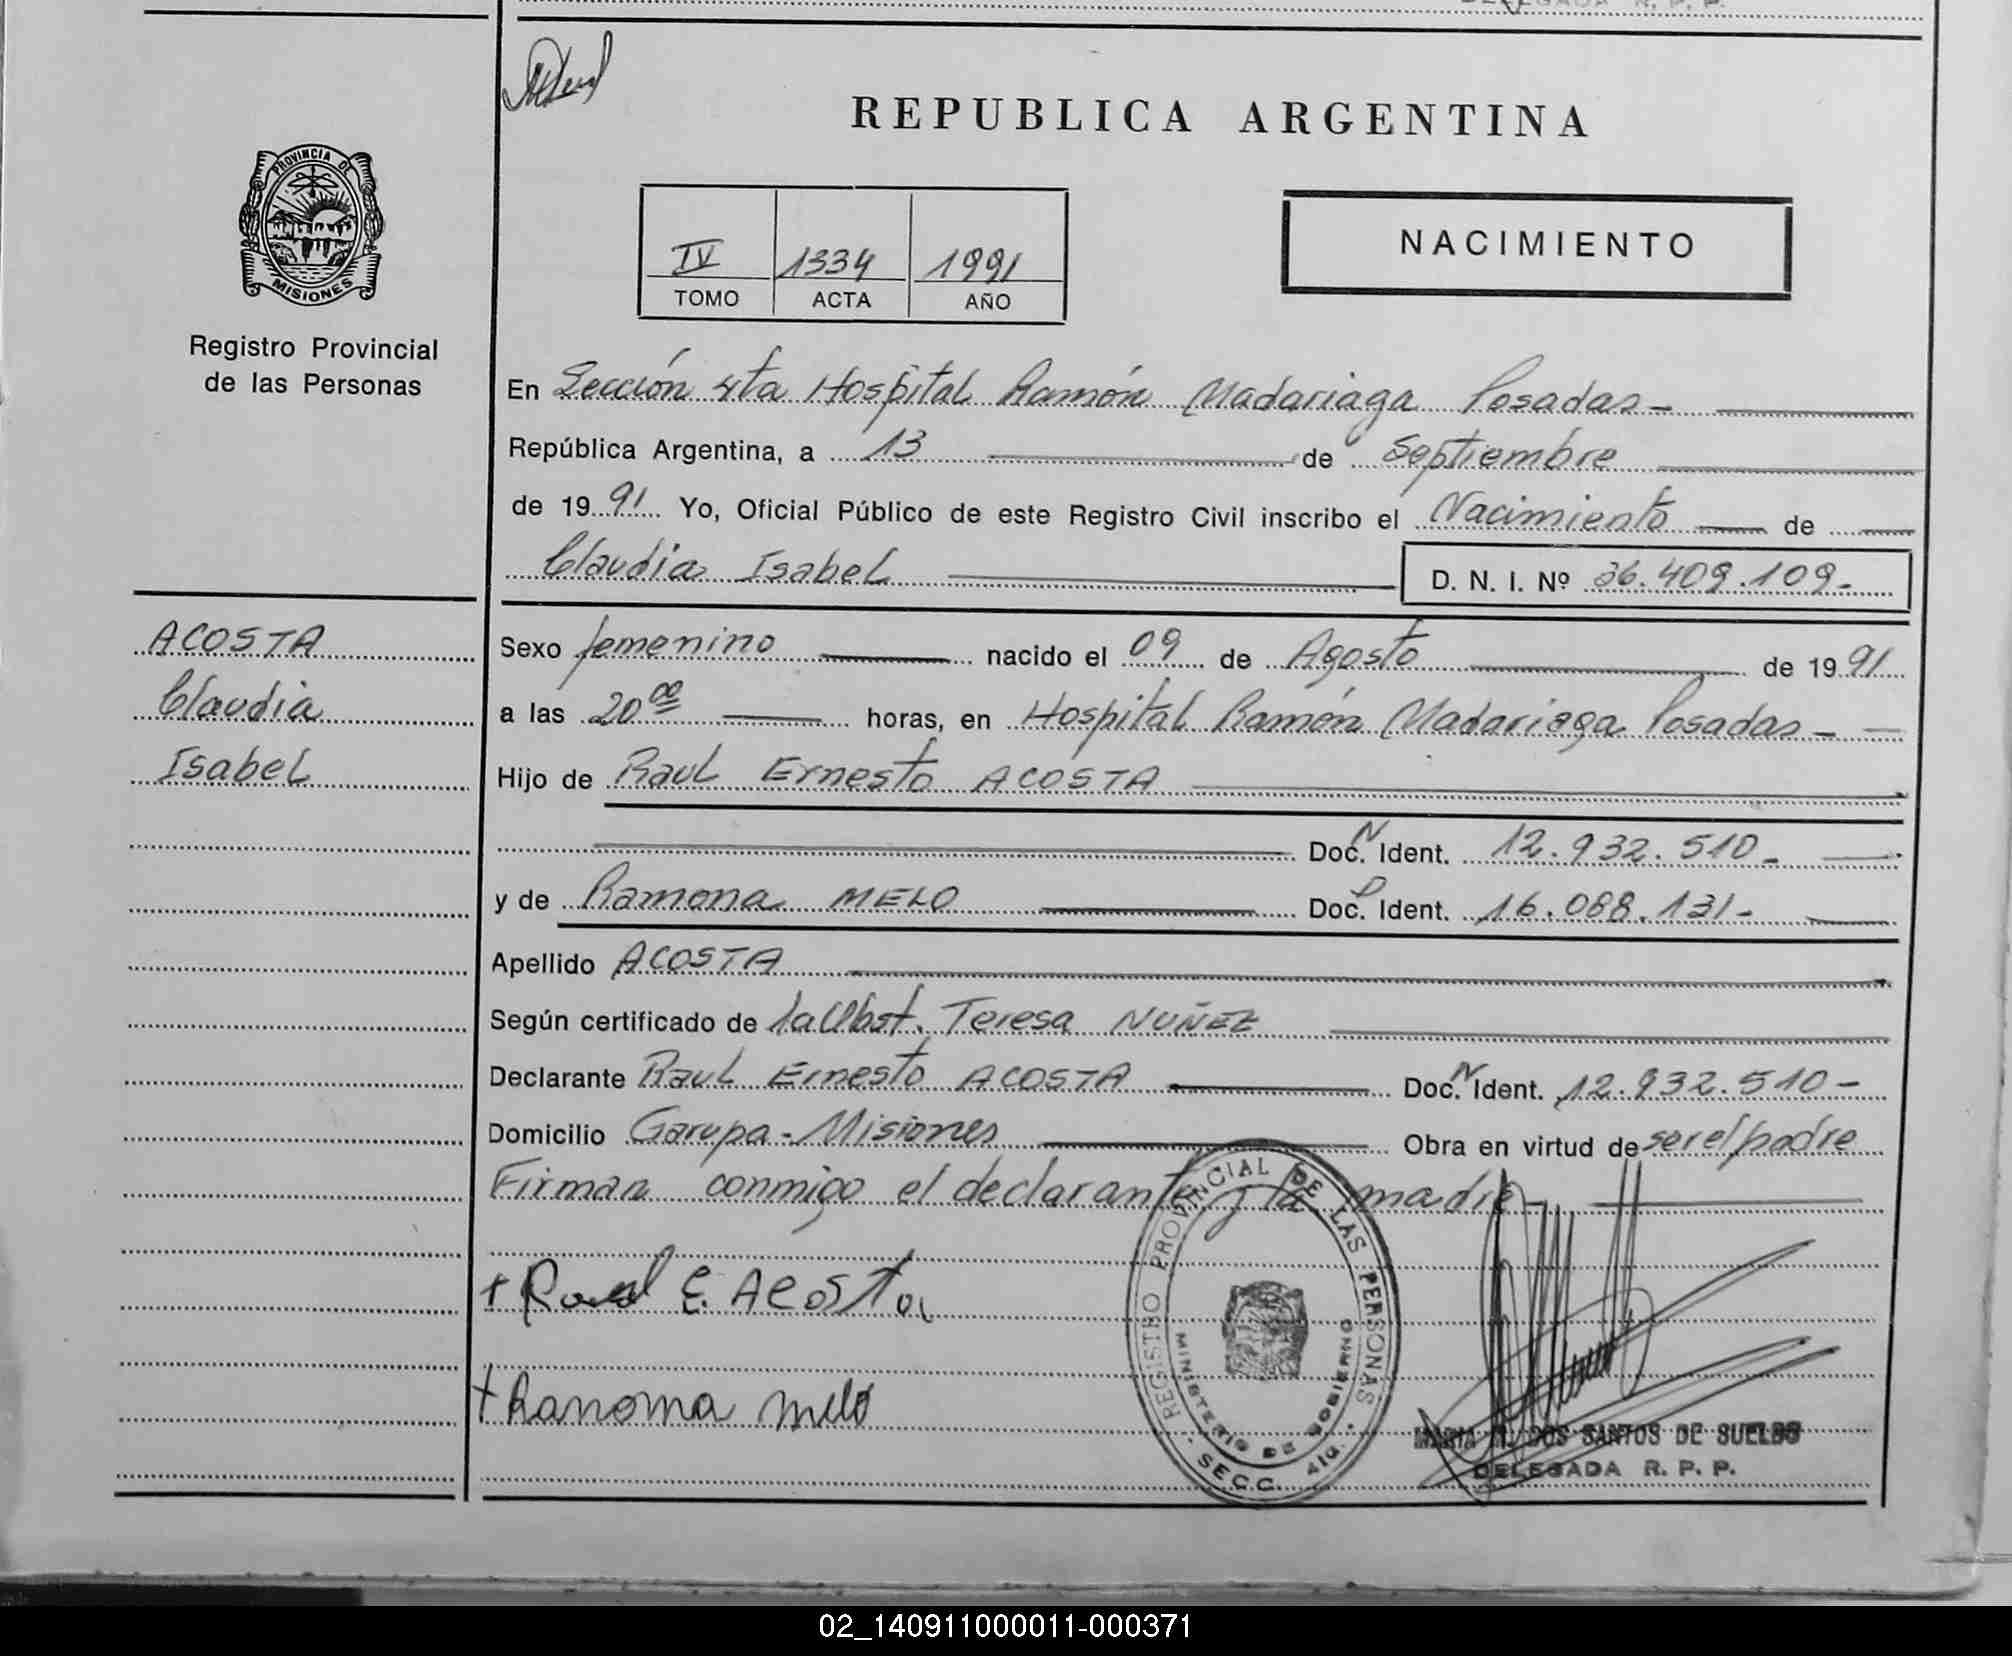 DELEGADA R. P. P.
REPUBLICA ARGENTINA
PROVINCIA DE
MISIONES
Registro Provincial
de las Personas
IV 1334 1991
TOMO ACTA AÑO
NACIMIENTO
En Sección 4ta Hospital Ramón Madariaga Posadas-
República Argentina, a 13 de Septiembre
de 1991 Yo, Oficial Público de este Registro Civil inscribo el Nacimiento de
Claudia Isabel D. N. I. Nº 36.409.109-
ACOSTA
Claudia
Isabel
Sexo femenino nacido el 09 de Agosto de 1991
a las 20 00 horas, en Hospital Ramón Madariaga Posadas-
Hijo de Raul Ernesto ACOSTA
Doc. N Ident. 12.932.510-
y de Ramona MELO Doc. Ident. 16.088.131-
Apellido ACOSTA
Según certificado de la Obst. Teresa NUÑEZ
Declarante Raul Ernesto ACOSTA Doc. N Ident. 12.932.510-
Domicilio Garupa-Misiones Obra en virtud de ser el padre
Firman conmigo el declarante y la madre-
+ Raul E. Acosta
+ Ranoma melo
REGISTRO PROVINCIAL DE LAS PERSONAS
MINISTERIO DE GOBIERNO
SECC. 4ta.
MARIA DOS SANTOS DE SUELDO
DELEGADA R. P. P.
02_140911000011-000371